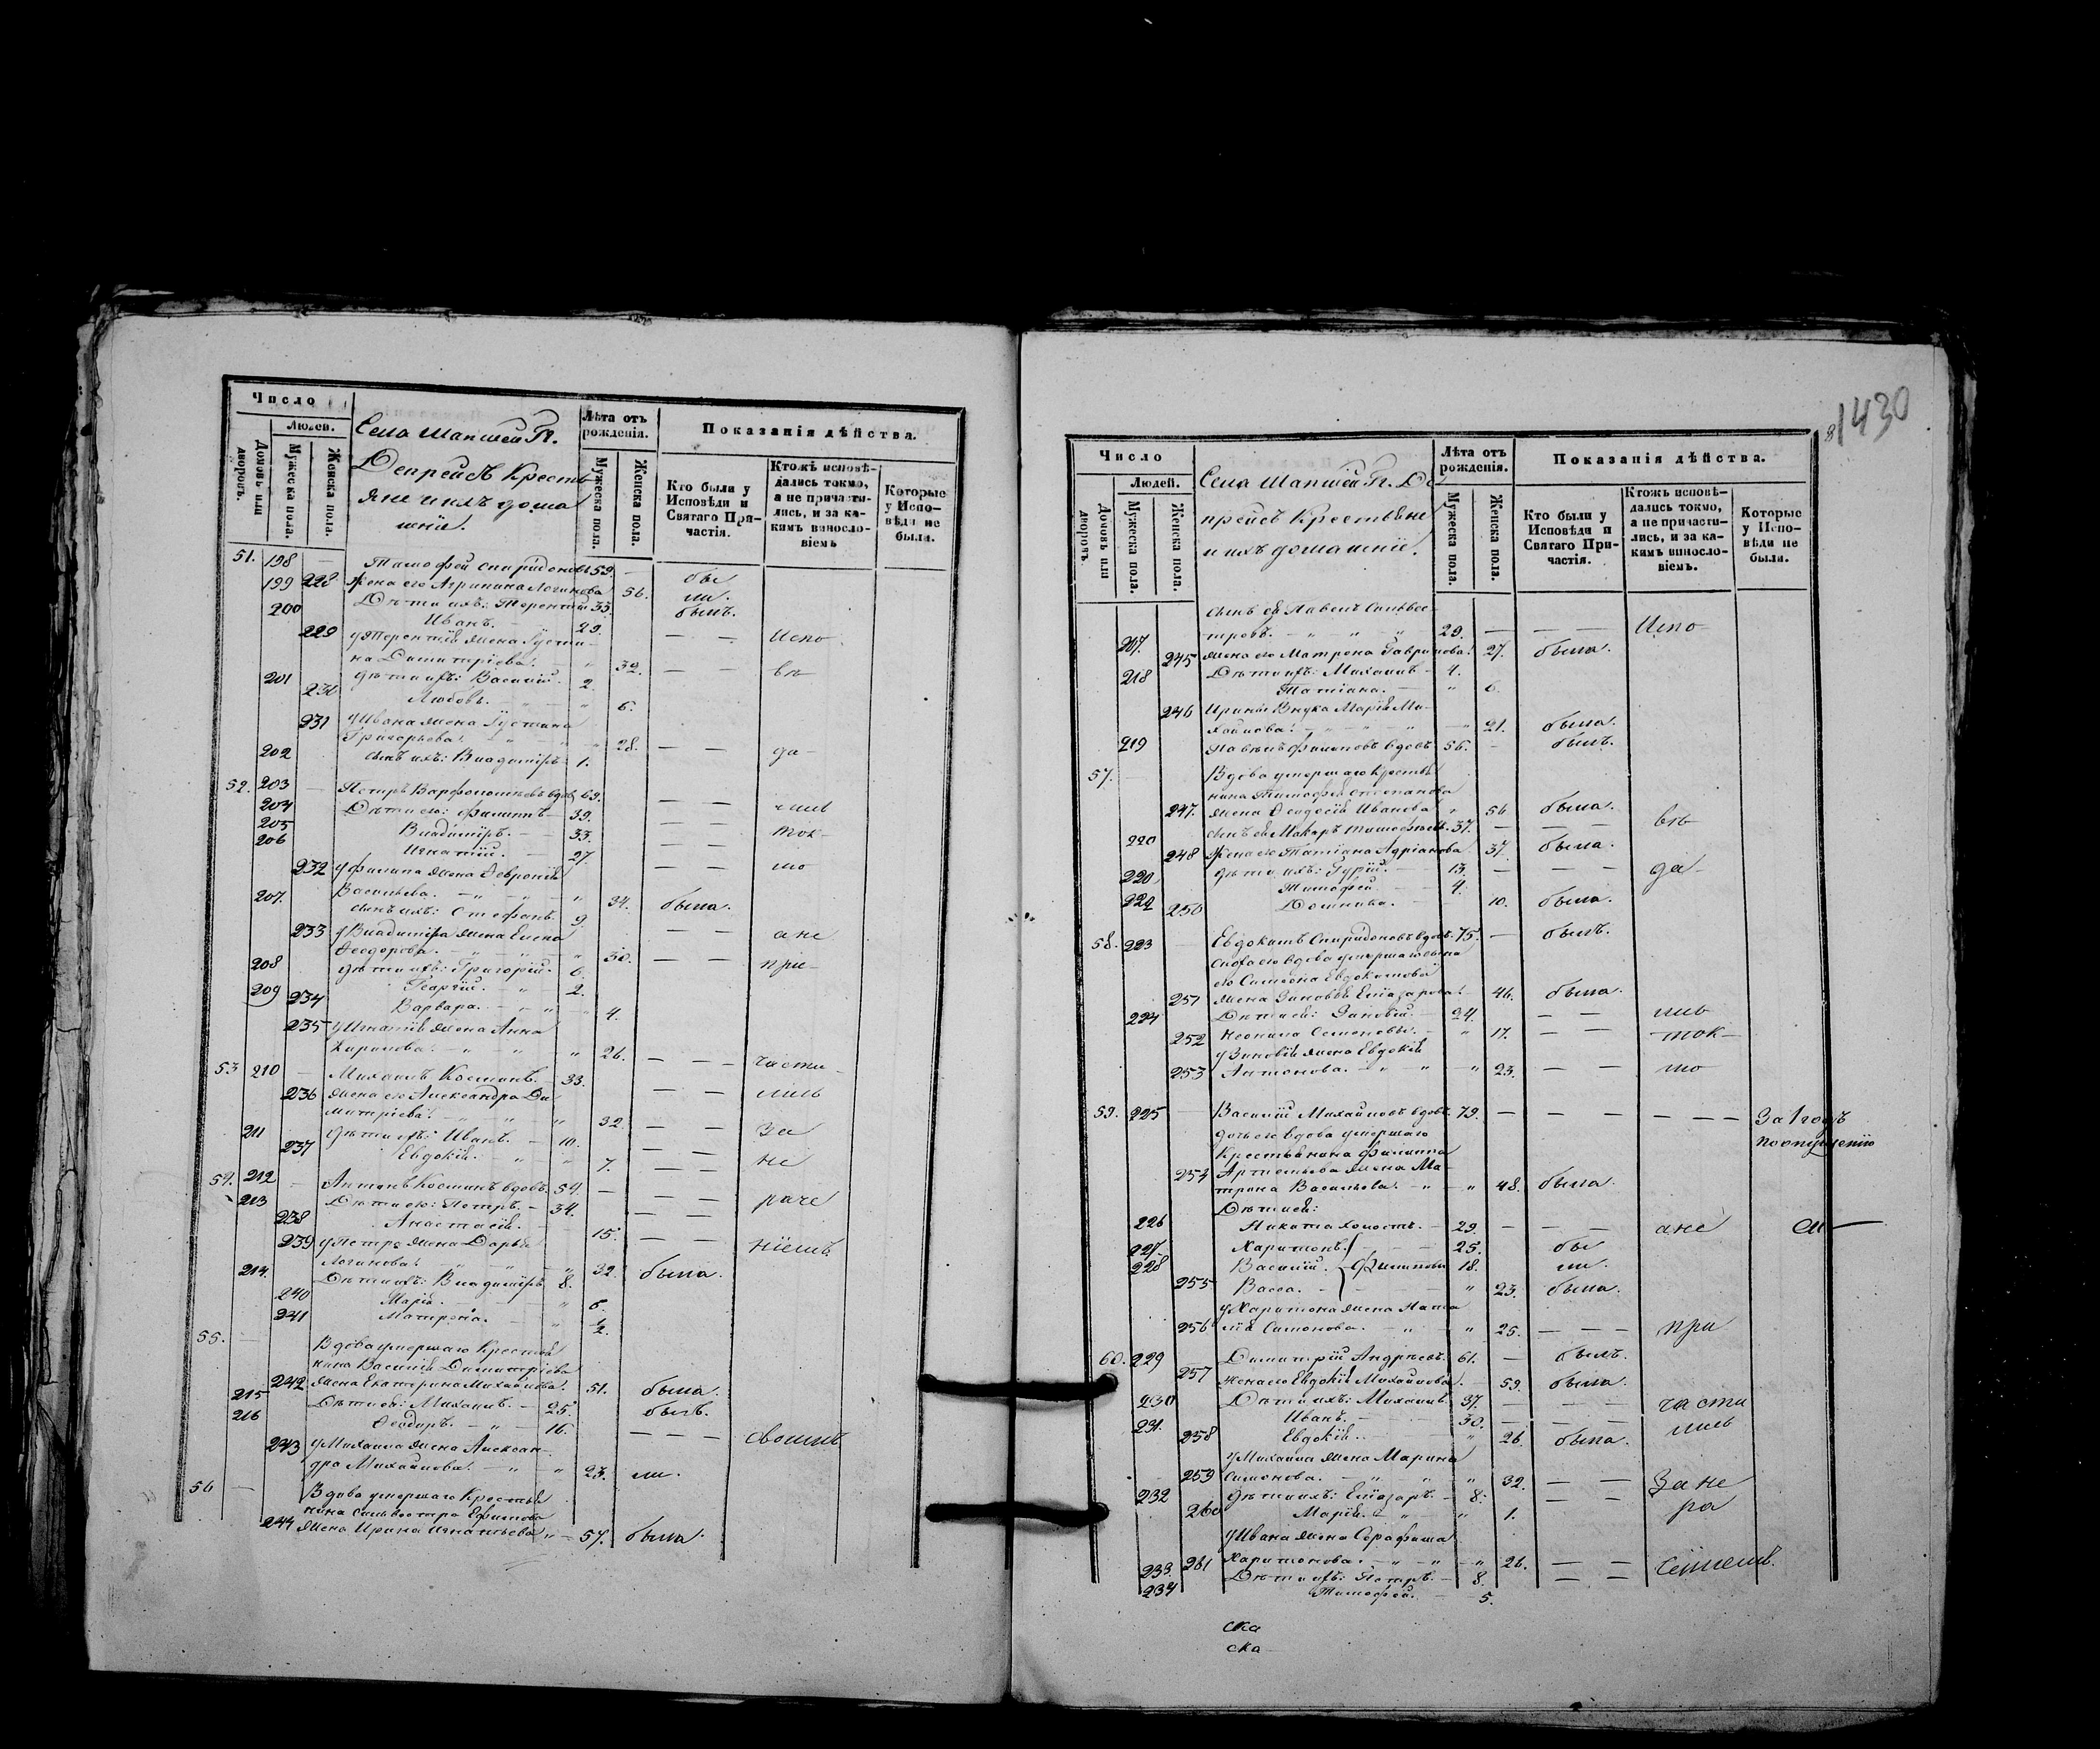 Число
Людей.
Домовъ или дворовъ.
Мужеска пола.
Женска пола.
Села Шапшей Гг.
Депрейсъ Кресть
яне и ихъ дома
шніе.
Лѣта отъ рожденія.
Мужеска пола.
Женска пола.
Показанія дѣйства.
Кто были у Исповѣди и Святаго Причастія.
Ктожъ исповѣдались токмо, а не причастились, и за какимъ винословіемъ
Которые у Исповѣди не были.
51. 198 — Тимофей Спиридоновъ 59. —
199 228 Жена его Агрипина Логинова 56. бы
200 Дѣти ихъ: Терентій 33. ли.
Иванъ. — 29. былъ.
229 у Терентія жена Густи-
на Димитріева. — „ 32. — — Испо-
201 дѣти ихъ: Василій. 2. вѣ
230 Любовь. „ — „ 6.
231 у Ивана жена Густина
Григорьева. — „ „ 28. — — да-
202 сынъ ихъ: Владиміръ 1.
52. 203 — Петръ Варфоломѣевъ вдовъ 69.
204 Дѣти его: Филиппъ — 39. — — лись
205 Владиміръ. — 33. — — ток-
206 Игнатій. — 27. — — мо
232 у Филипа жена Февронія
Васильева. — „ — „ 34. была.
207. сынъ ихъ: Стефанъ. 9.
233 у Владиміра жена Елена — — а не
Феодорова. — „ „ 30. — — при-
208 дѣти ихъ: Григорій. 6.
209 Георгій. — „ 2.
234 Варвара. — „ — „ 4.
235 у Игнатія жена Анна
Харитова. — „ „ „ 26. — — части-
53 210 — Михаилъ Косминъ. — 33. — — лись
236 жена его Александра Ди
митріева. — „ „ 32. — — за
211 дѣти ихъ: Иванъ. — 10. — —
237 Евдокія. — „ „ 7. — — не
54. 212 — Антонъ Косминъ вдовъ. 54. — — — раче
213 Дѣти его: Петръ. — 34. — — —
238 Анастасія. — 15. — — ніемъ
239 у Петра жена Дарья
Логинова. „ „ „ 32. была.
214. Дѣти ихъ: Владиміръ 8.
240 Марія. — „ 6.
241 Матрона. — „ ½.
55. — Вдова умершаго Крестья
нина Василія Димитріева
242 жена Екатерина Михайлова. 51. была.
215 Дѣти ея: Михаилъ. — 25. былъ.
216 Феодоръ. — „ — 16. — — — своимъ
243 у Михаила жена Алексан-
дра Михайлова. — „ „ 23. ли.
56 — Вдова умершаго Крестья
нина Сильвестра Ефимова
244 жена Ирина Игнатьева „ — 57. была.
1430
Число
Людей.
Домовъ или дворовъ
Мужеска пола.
Женска пола.
Села Шапшей Гг. Де
прейсъ Крестьяне
и ихъ домашніе.
Лѣта отъ рожденія.
Мужеска пола.
Женска пола.
Показанія дѣйства.
Кто были у Исповѣди и Святаго Причастія.
Ктожъ исповѣдались токмо, а не причастились, и за какимъ винословіемъ.
Которые у Исповѣди не были.
сынъ ея Павелъ Сильвес-
217. тровъ. — „ — „ — „ 29. — — — Испо-
245 жена его Матрона Гаврилова. 27. была.
218 Дѣти ихъ: Михаилъ — 4.
Татіана. — „ 6.
246 Ирины Внука Марія Ми-
хайлова. „ — „ — „ 21. была.
219 Павелъ Филиповъ вдовъ. 56. — былъ.
57. — Вдова умершаго Крестья
нина Тимофея Степанова
247. жена Феодосія Иванова „ 56 была.
220 сынъ ея Макаръ Тимофѣевъ. 37. — — — вѣ-
248 Жена его Татіана Адріанова 37. была.
220 дѣти ихъ: Гурій. — 13. — — — да-
222 Тимофей — — 4.
250 Домника. — — 10. была.
58. 223 — Евдокимъ Спиридоновъ вдовъ. 75. — былъ.
Сноха его вдова умершаго сына
его Симеона Евдокимова
251 жена Зиновія Елизарова. — 46. была.
224 Дѣти ея: Зиновій. — 24. — — лись
252 Неонила Семенова. — „ 17. — — ток-
у Зиновія жена Евдокія
253 Антонова. — „ — „ „ 23. — — мо
59. 225 — Василій Михайловъ вдовъ. 79. — — — — — — За 1 годъ
дочь его вдова умершаго по опущенію
Крестьянина Филиппа
254 Артемьева жена Ма-
трона Васильева. — „ — „ 48. была.
Дѣти ея:
226 Никита холостъ. — 29. — — — а не
227. Харитонъ. — — 25. бы
228 Василій. Филиповы 18. ли.
255 Васса. — — „ 23. была.
у Харитона жена Ната
256 лія Симонова. — „ — „ 25. — — — при
60. 229 Димитрій Андрѣевъ. 61. — былъ.
257 жена его Евдокія Михайлова. — 59. была.
230 Дѣти ихъ: Михаилъ. 37. — — — части
231. Иванъ. — 30. — — — лись
258 Евдокія. — „ 26. была.
у Михаила жена Марина
259 Симонова. — „ „ „ 32. — — За не
232 дѣти ихъ: Елизаръ. — 8. — — ра
260 Марія. — „ — „ 1.
у Ивана жена Серафима
261 Харитонова. — „ — „ — „ 26. — — ченіемъ.
233. Дѣти ихъ: Петръ. — 8. — —
234 Тимофей. — 5.
ска
ска